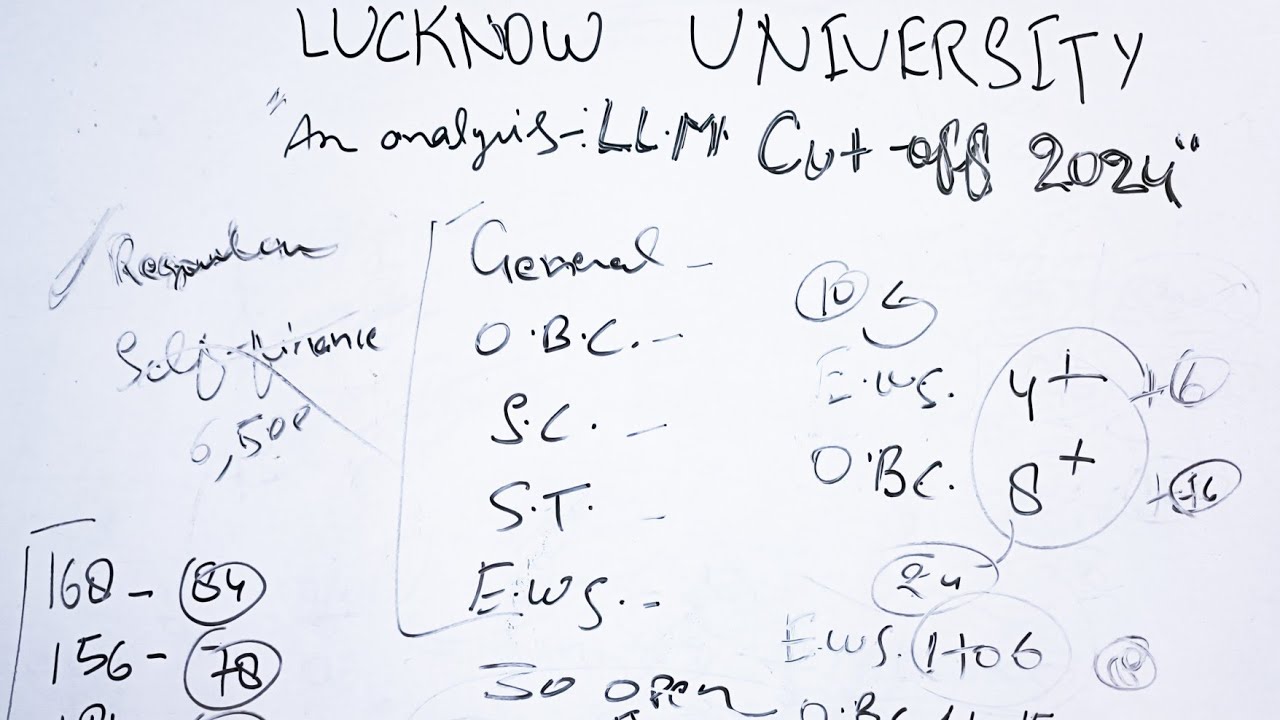 LUCKNOW UNIVERSITY
"An analysis-: LL.M. Cut-off 2024"
Regular
Self-finance
6,500
General -
O.B.C. -
S.C. -
S.T. -
E.W.S. -
10
E.W.S. 4+ +6
O.B.C. 8+ +16
24
E.W.S. 1 to 6
168 - 84
156 - 78
50 open
O.B.C.